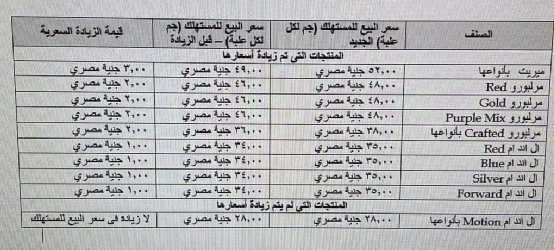 الصنف سعر البيع للمستهلك (جم لكل علبة) الجديد سعر البيع للمستهلك (جم لكل علبة) – قبل الزيادة قيمة الزيادة السعرية
المنتجات التى تم زيادة أسعارها
ميريت بأنواعها ٥٢,٠٠ جنية مصري ٤٩,٠٠ جنية مصري ٣,٠٠ جنية مصري
مرلبورو Red ٤٨,٠٠ جنية مصري ٤٦,٠٠ جنية مصري ٢,٠٠ جنية مصري
مرلبورو Gold ٤٨,٠٠ جنية مصري ٤٦,٠٠ جنية مصري ٢,٠٠ جنية مصري
مرلبورو Purple Mix ٤٨,٠٠ جنية مصري ٤٦,٠٠ جنية مصري ٢,٠٠ جنية مصري
مرلبورو Crafted بأنواعها ٣٨,٠٠ جنية مصري ٣٦,٠٠ جنية مصري ٢,٠٠ جنية مصري
ال اند ام Red ٣٥,٠٠ جنية مصري ٣٤,٠٠ جنية مصري ١,٠٠ جنية مصري
ال اند ام Blue ٣٥,٠٠ جنية مصري ٣٤,٠٠ جنية مصري ١,٠٠ جنية مصري
ال اند ام Silver ٣٥,٠٠ جنية مصري ٣٤,٠٠ جنية مصري ١,٠٠ جنية مصري
ال اند ام Forward ٣٥,٠٠ جنية مصري ٣٤,٠٠ جنية مصري ١,٠٠ جنية مصري
المنتجات التى لم يتم زيادة أسعارها
ال اند ام Motion بأنواعها ٢٨,٠٠ جنية مصري ٢٨,٠٠ جنية مصري لا زيادة فى سعر البيع للمستهلك